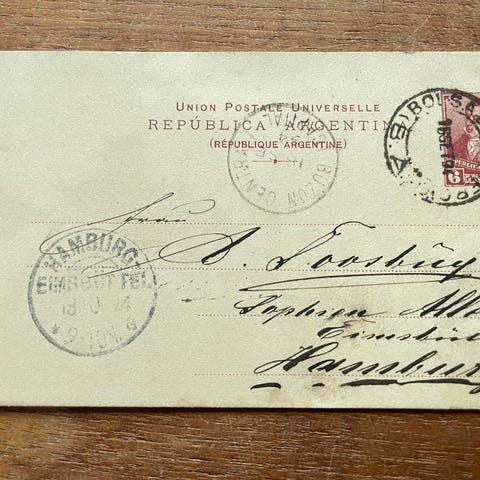 UNION POSTALE UNIVERSELLE
REPÚBLICA ARGENTIN
(RÉPUBLIQUE ARGENTINE)
BUZON CENTRA
BOLSA
6
HAMBURG
EIMSBÜTTEL
Frau
Sophien Alle
Eimsbüt
Hamburg